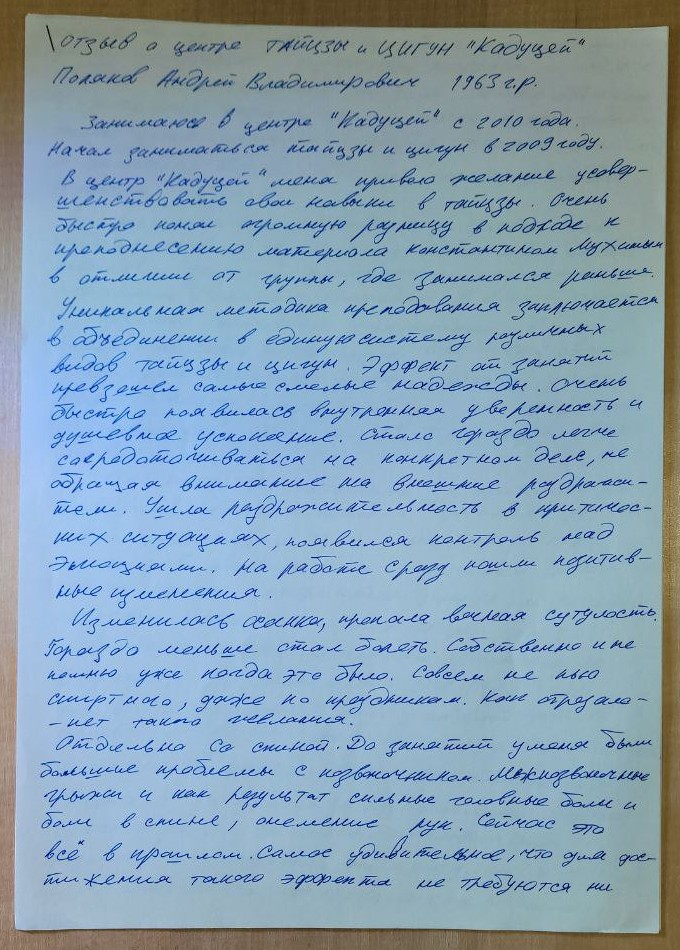 Отзыв о центре тайцзы и цигун "Кадуцей"
Поляков Андрей Владимирович 1963 г.р.
Занимаюсь в центре "Кадуцей" с 2010 года.
Начал заниматься тайцзы и цигун в 2009 году.
В центр "Кадуцей" меня привело желание усовер-
шенствовать свои навыки в тайцзы. Очень
быстро понял огромную разницу в подходе к
преподнесению материала Константином Мухиным
в отличии от группы, где занимался раньше.
Уникальная методика преподования заключается
в объединении в единую систему различных
видов тайцзы и цигун. Эффект от занятий
превзошел самые смелые надежды. Очень
быстро появилась внутренняя уверенность и
душевное успокоение. Стало гораздо легче
сосредотачиваться на конкретном деле, не
обращая внимание на внешние раздражи-
тели. Ушла раздражительность в критичес-
ких ситуациях, появился контроль над
эмоциями. На работе сразу пошли позитив-
ные изменения.
Изменилась осанка, пропала вечная сутулость.
Гораздо меньше стал болеть. Собственно и не
помню уже когда это было. Совсем не пью
спиртного, даже по праздникам. Как отрезало-
- нет такого желания.
Отдельно со спиной. До занятий у меня были
большие проблемы с позвоночником. Межпозвоночные
грыжи и как результат сильные головные боли и
боли в спине, онемение рук. Сейчас это
всё в прошлом. Самое удивительное, что для дос-
тижения такого эффекта не требуются ни